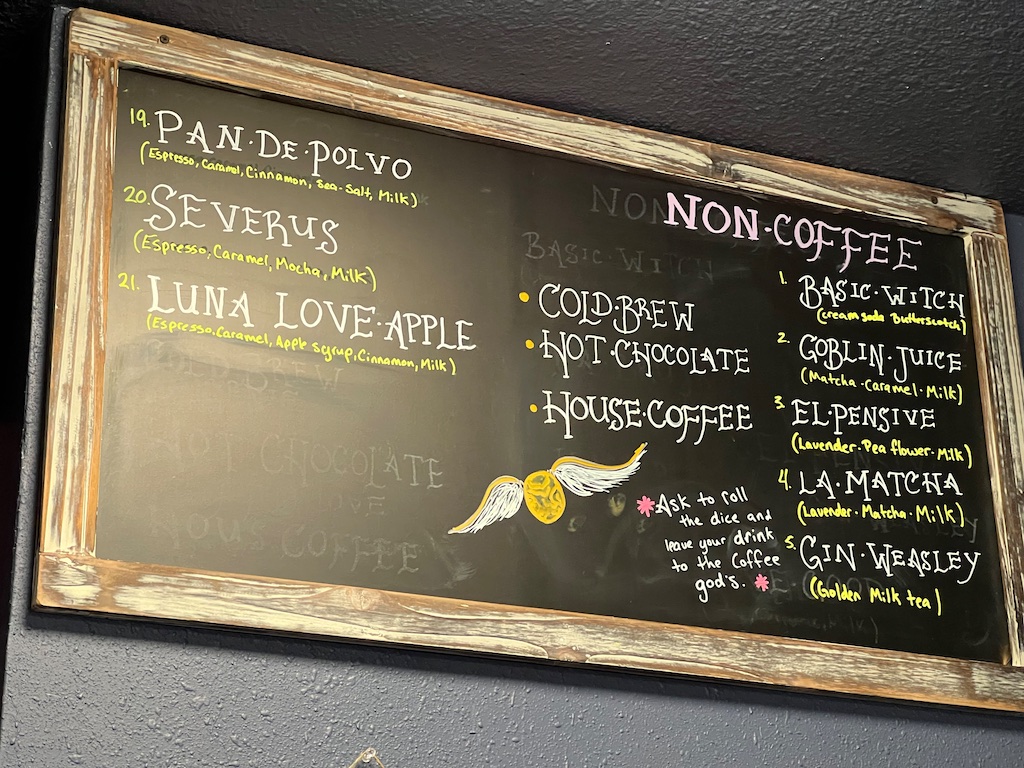 19. PAN·DE·POLVO
(Espresso, Caramel, Cinnamon, Sea-Salt, Milk)
20. SEVERUS
(Espresso, Caramel, Mocha, Milk)
21. LUNA LOVE·APPLE
(Espresso, Caramel, Apple syrup, Cinnamon, Milk)
COLD BREW
HOT CHOCOLATE
NON
BASIC WITCH
• COLD·BREW
• HOT·CHOCOLATE
• HOUSE·COFFEE
*Ask to roll
the dice and
leave your drink
to the Coffee
god's. *
NON·COFFEE
1. BASIC·WITCH
(cream soda Butterscotch)
2. GOBLIN·JUICE
(Matcha·Caramel·Milk)
3. EL·PENSIVE
(Lavender·Pea flower·Milk)
4. LA·MATCHA
(Lavender·Matcha·Milk)
5. GIN·WEASLEY
(Golden Milk tea)